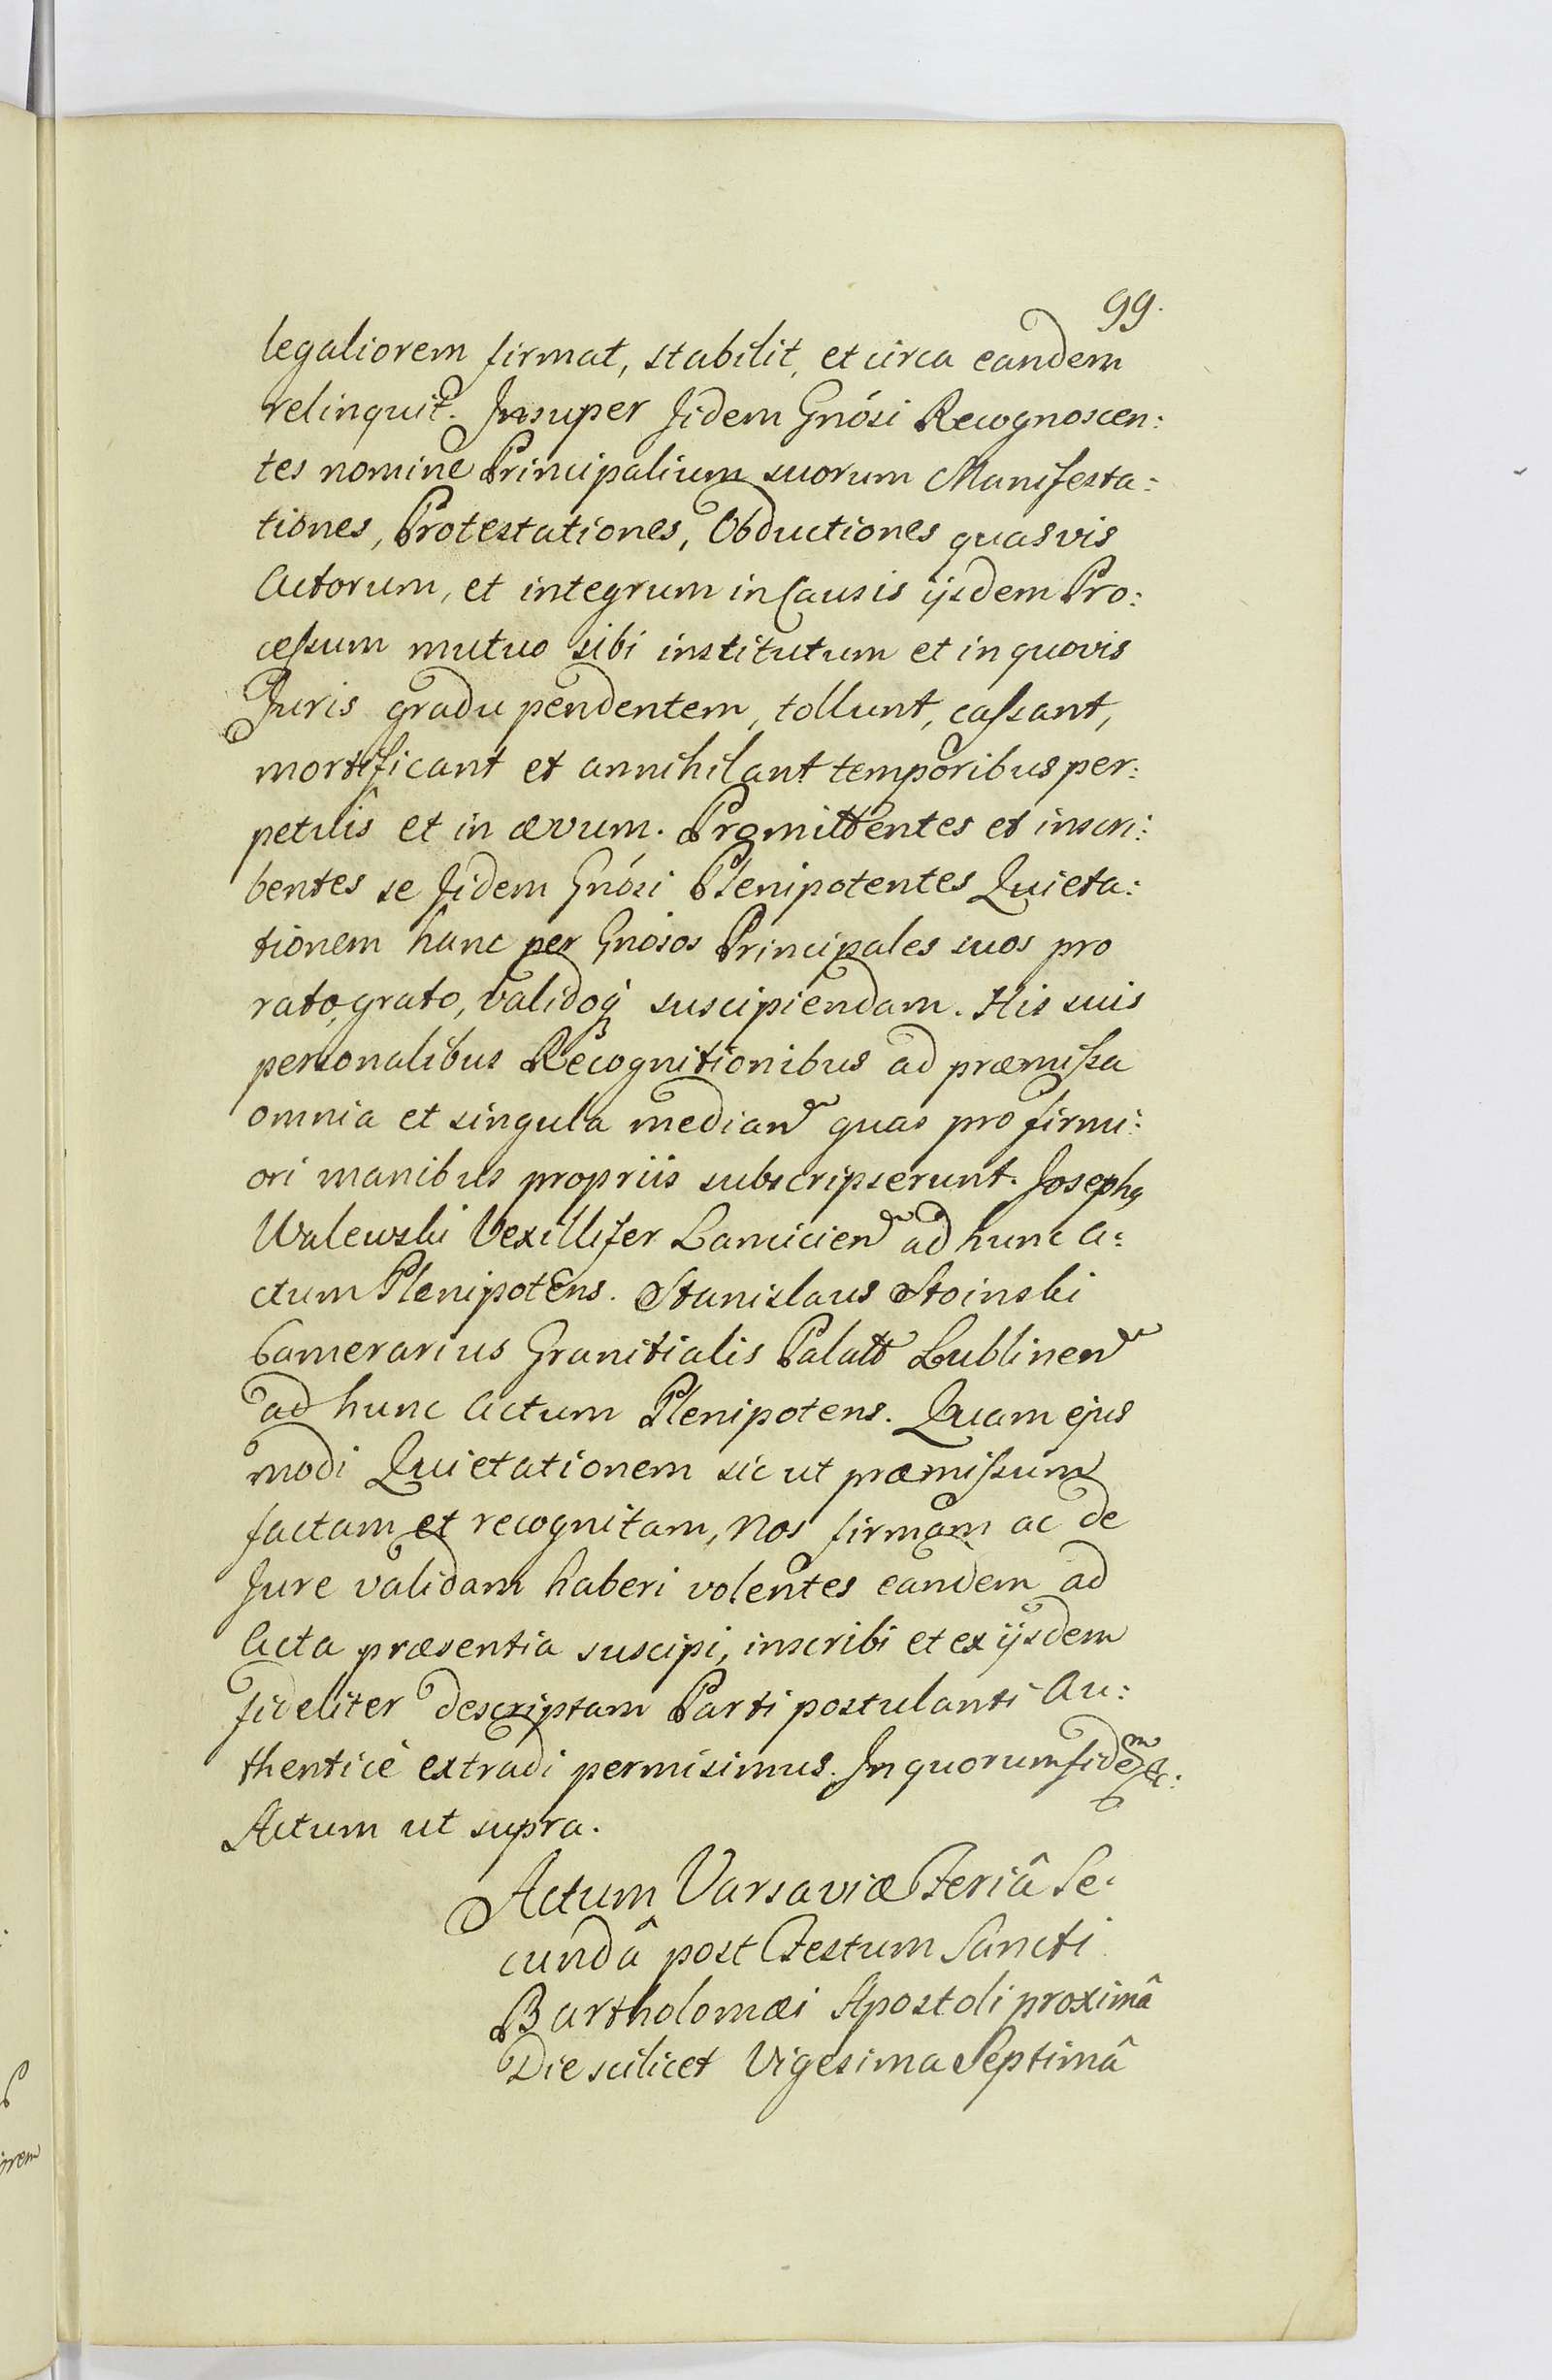 99.
legaliorem firmat, stabilit, et circa eandem
relinquit. Insuper Jidem Gnósi Recognoscen:
tes nomine Principalium suorum Manifesta:
tiones, Protestationes, Obductiones quasvis
Actorum, et integrum in Causis ijsdem Pro:
cessum mutuo sibi institutum et in quovis
Juris gradu pendentem, tollunt, cassant,
mortificant et annihilant temporibus per:
petuis et in ævum. Promittentes et inscri:
bentes se Jidem Gnósi Plenipotentes Quieta:
tionem hanc per Gnósos Principales suos pro
rato, grato, validoq suscipiendam. His suis
personalibus Recognitionibus ad præmissa
omnia et singula median quas pro firmi:
ori manibus propriis subscripserunt. Josephq
Walewski Vexillifer Lanicien ad hunc A:
ctum Plenipotens. Stanislaus Stoinski
Camerarius Granitialis Palatt Lublinen
ad hunc Actum Plenipotens. Quam ejus
modi Quietationem sic ut præmissum
factam et recognitam, Nos firmam ac de
Jure validam haberi volentes eandem ad
Acta præsentia suscipi, inscribi et ex ijsdem
fideliter descriptam Parti postulanti Au:
thenticè extradi permisimus. In quorum fidem &c:
Actum ut supra.
Actum Varsaviæ Feriâ Se:
cundâ post Festum Sancti
Bartholomæi Apostoli proximâ
Die scilicet Vigesima Septimâ